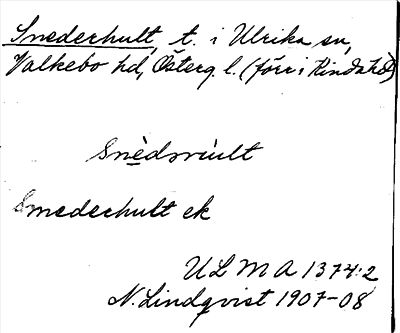 Snederhult, t. i Ulrika sn,
Valkebo hd, Österg. l. (förr i Kinda hd)
Snèdsrùult
Smederhult ek
ULMA 1374:2
N. Lindqvist 1907-08